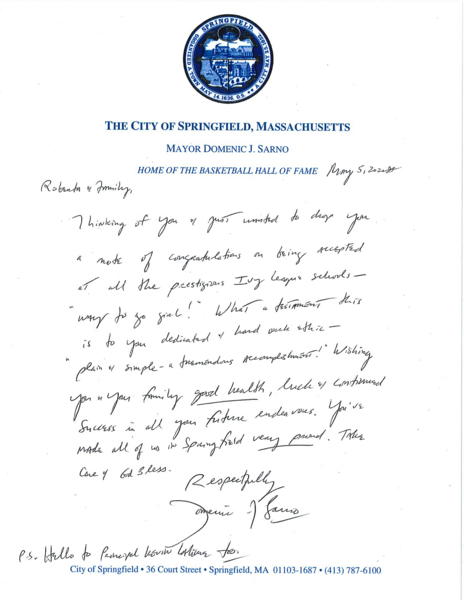 SPRINGFIELD
MAY 14, 1636.
THE CITY OF SPRINGFIELD, MASSACHUSETTS
MAYOR DOMENIC J. SARNO
HOME OF THE BASKETBALL HALL OF FAME May 5, 2020
& Family,
Thinking of you & just wanted to drop you
a note of congratulations on being accepted
at all the prestigious Ivy League schools—
"way to go girl!" What a testament this
is to you dedicated & hard work ethic—
"plain & simple - a tremendous accomplishment!" Wishing
you & your family good health, luck & continued
success in all your future endeavors. You've
made all of us in Springfield very proud. Take
Care & God Bless.
Respectfully
Domenic J Sarno
P.S. Hello to Principal Kevin too.
City of Springfield • 36 Court Street • Springfield, MA 01103-1687 • (413) 787-6100